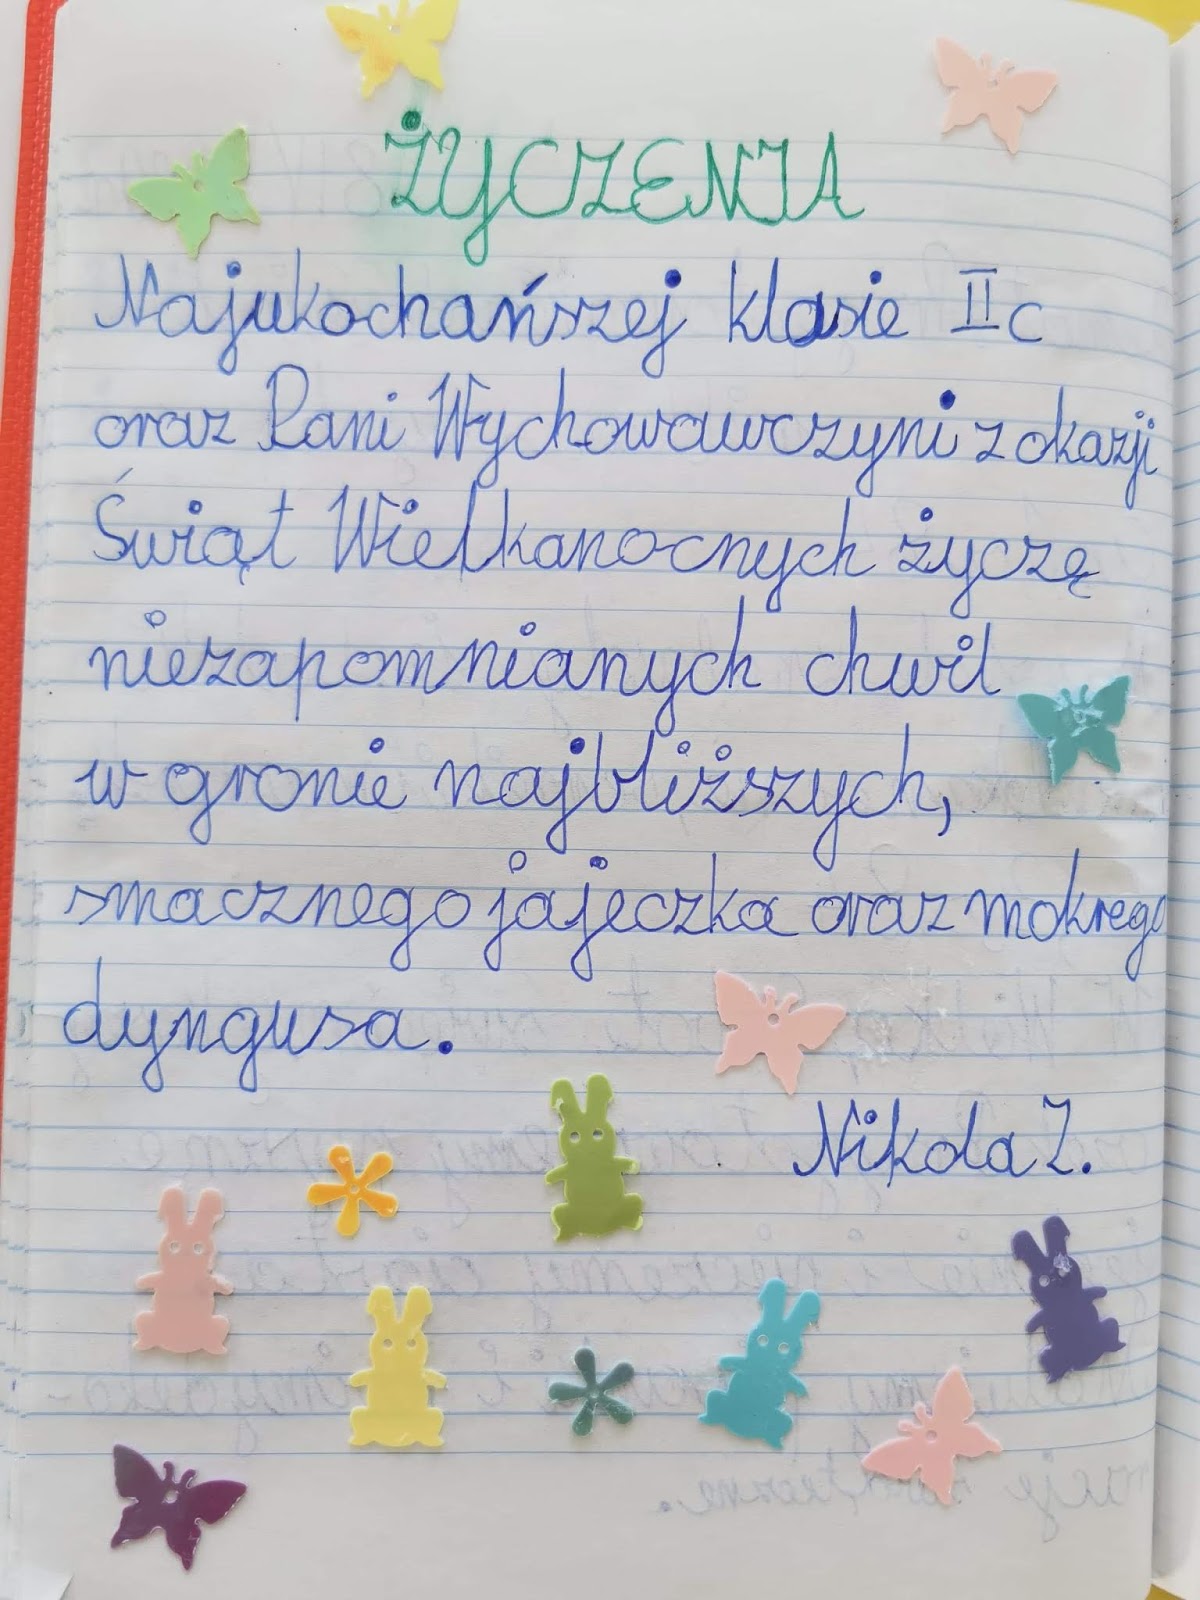 ŻYCZENIA
Najukochańszej klasie IIc
oraz Pani Wychowawczyni z okazji
Świąt Wielkanocnych życzę
niezapomnianych chwil
w gronie najbliższych,
smacznego jajeczka oraz mokrego
dyngusa.
Nikola Z.